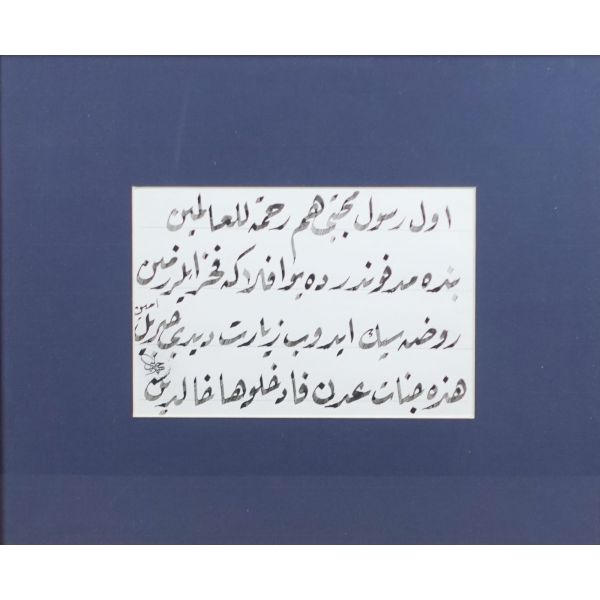 اول رسول مجتبى هم رحمة للعالمين
بنده مدفوندر ديو افلاكه فخر ايلر زمين
روضه سيك ايدوب زيارت ديدى جبريل امين
هذه جنات عدن فادخلوها خالدين